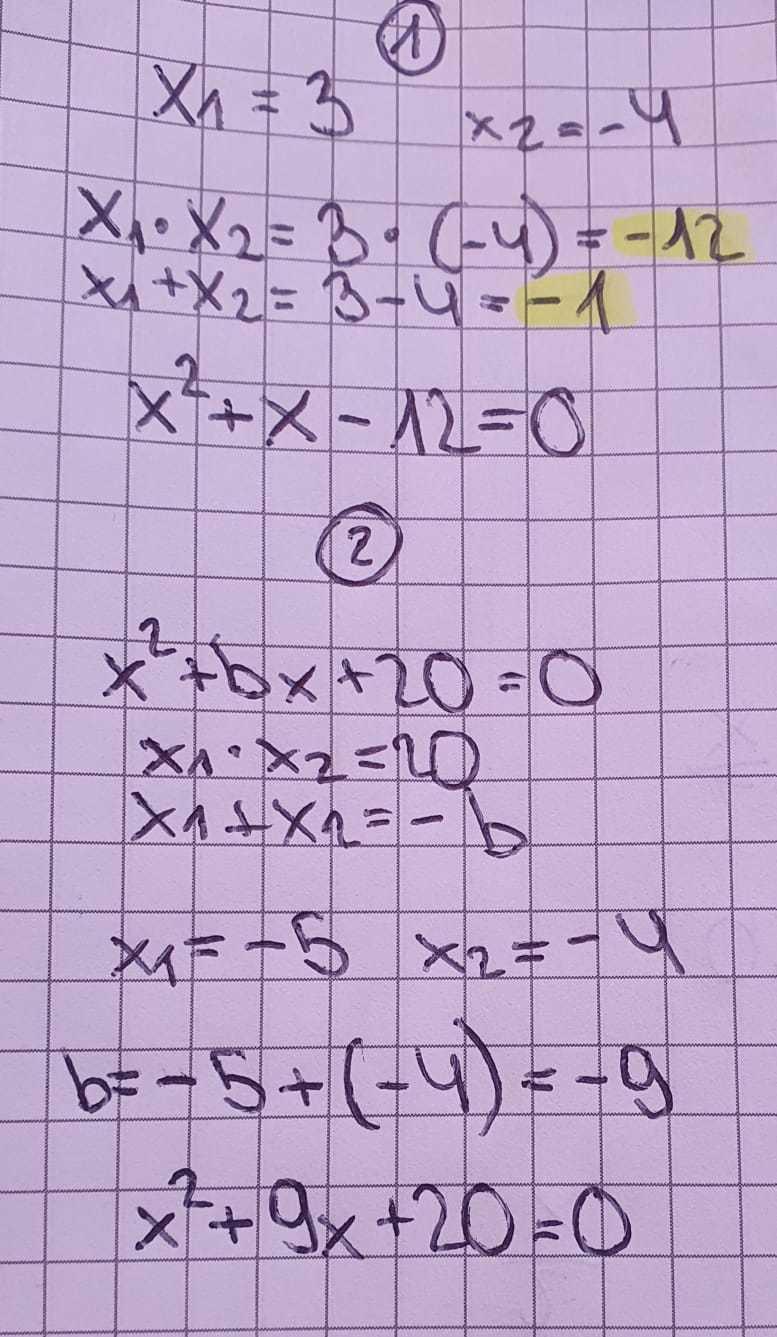 ①
x₁ = 3 x₂ = -4
x₁ · x₂ = 3 · (-4) = -12
x₁ + x₂ = 3 - 4 = -1
x² + x - 12 = 0
②
x² + bx + 20 = 0
x₁ · x₂ = 20
x₁ + x₂ = - b
x₁ = -5 x₂ = -4
b = -5 + (-4) = -9
x² + 9x + 20 = 0